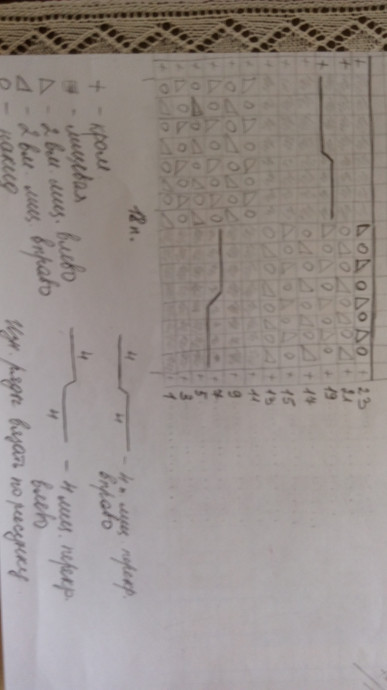 1 3 5 7 9 11 13 15 17 19 21 23
12 п.
+ - кром
- лицевая
- 2 вм. лиц. влево
- 2 вм. лиц. вправо
О - накид
4 4 - 4 лиц. перекр. вправо
4 4 - 4 лиц. перекр. влево
Изн. ряды вязать по рисунку.